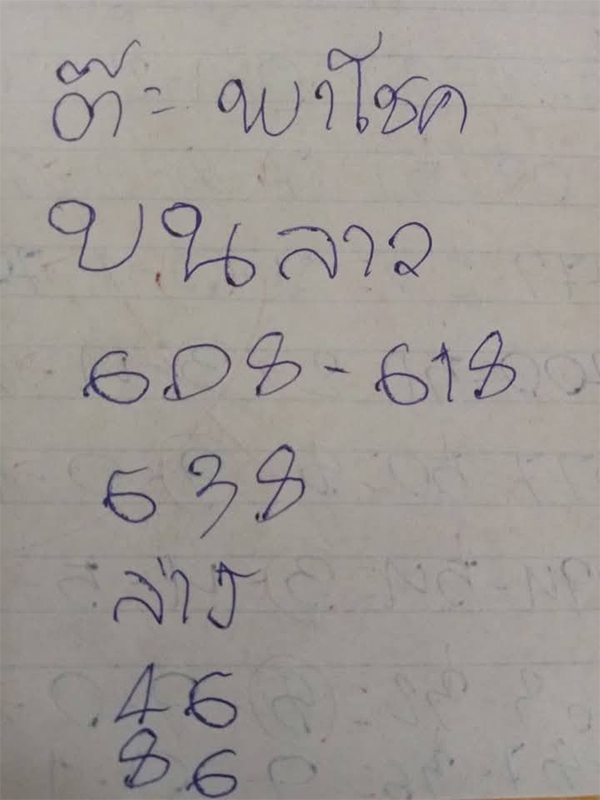 ต๊ะ พาโชค
บน ลาว
608 - 618
638
ล่าง
46
86